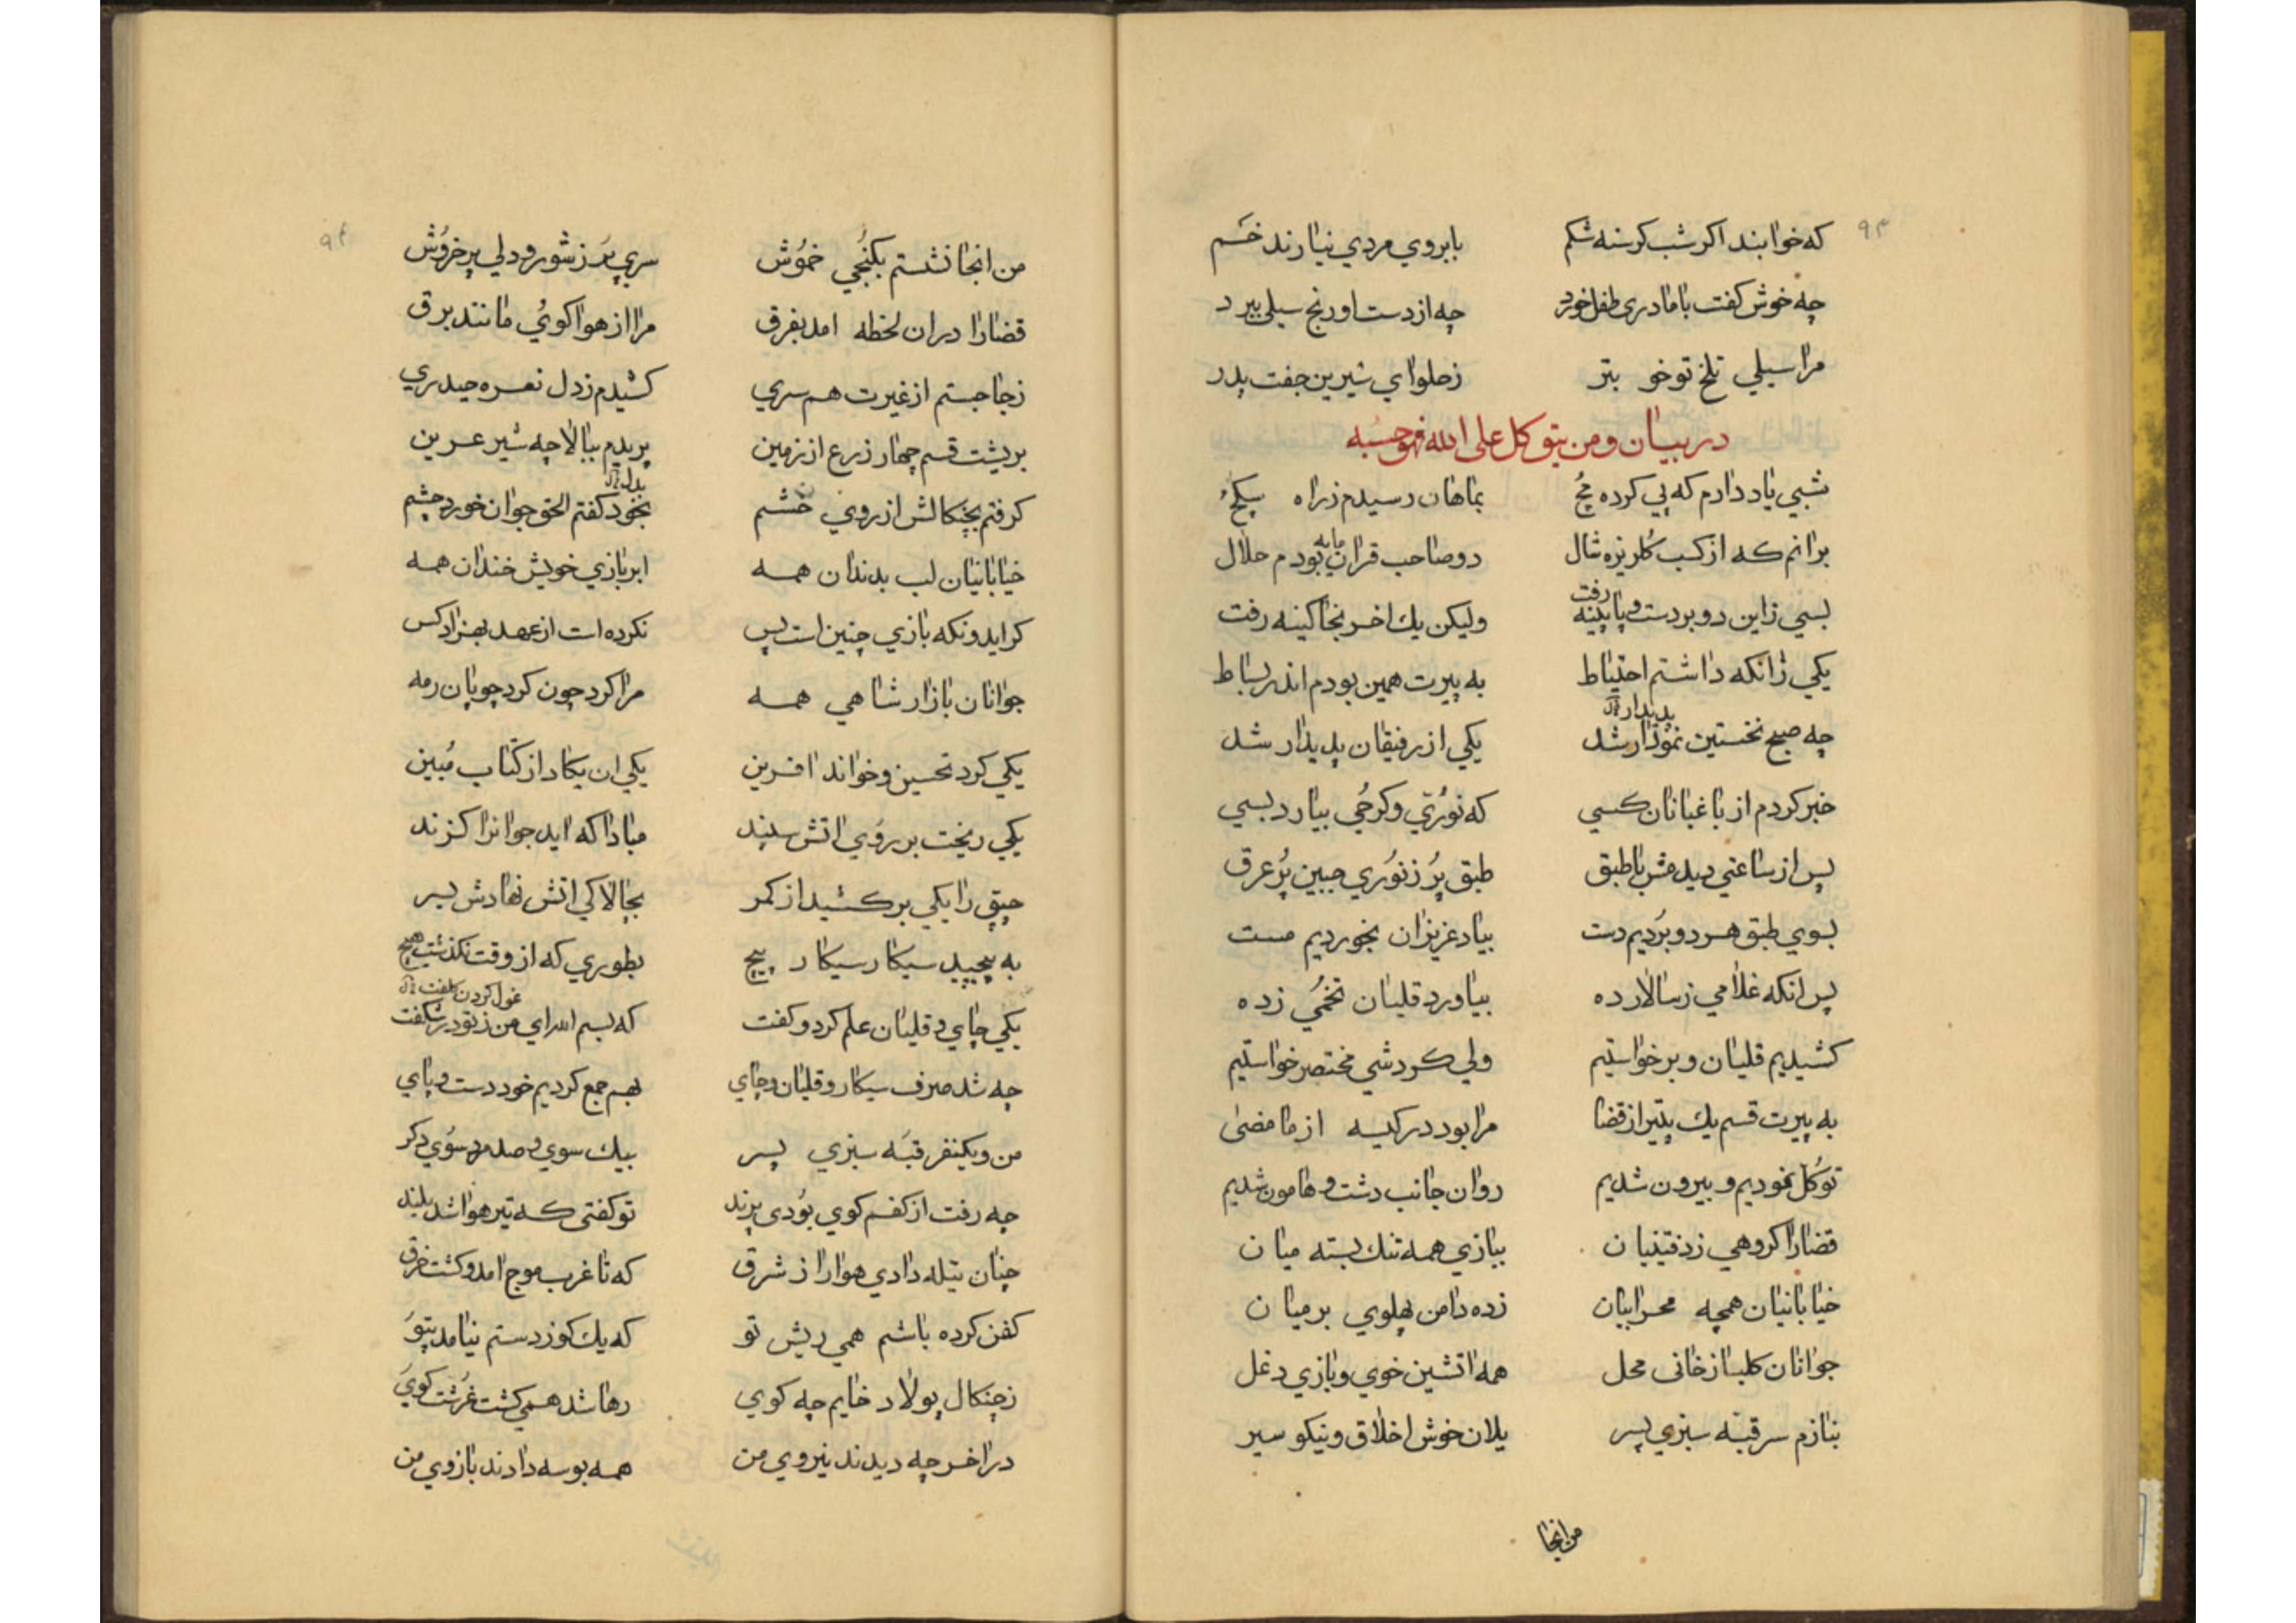 ۹۳
که خوابند اکر شب کرسنه شکم بابروی مردی نیارند خم
چه خوش کفت با مادری طفل خورد چه از دست او رنج سیلی ببرد
مرا سیلی تلخ تو خوبتر زحلوای شیرین جفت پدر
در بیان ومن یتوکل علی الله فهو حسبه
شبی یاد دارم که پی کرده مچ بماهان رسیدم ز راه
برانم که از کسب کلریزه شال دو صاحب قران مایه بودم حلال
بسی زاین دو بر دست و پا پینه رفت ولیکن یك اخر بخاکینه رفت
یکی زانکه داشتم احتیاط به پیرت همین بودم اندر بساط
چه صبح نخستین نمودار شد یکی از رفیقان پدیدار شد
خبر کردم از باغبانان کسی که توری وکرجی بیارد بسی
پس از ساعتی دیدمش با طبق طبق پر ز توری جبین پر عرق
بسوی طبق هر دو بردیم دست بیاد عزیزان بخوردیم مست
پس انکه غلامی ز سالار ده بیاورد قلیان تخمی زده
کشیدیم قلیان و برخواستیم ولی کردشی مختصر خواستیم
به پیرت قسم یك پتیر از قضا مرا بود در کیسه از ما مضی
توکل نمودیم و بیرون شدیم روان جانب دشت و هامون شدیم
قضارا کروهی زدفتینیان ببازی همه تنك بسته میان
خیابانیان همچه محرابیان زده دامن پهلوی بر میان
جوانان کلباز خانی محل همه اتشین خوی و بازی دغل
بنازم سر قبه سبزی پسر یلان خوش اخلاق و نیکو سیر
من انجا
۹۴
من انجا نشستم بکنجی خموش سری پر ز شور و دلی پر خروش
قضارا دران لحظه امد بفرق مرا از هوا کوی مانند برق
زجا جستم از غیرت هم سری کشیدم ز دل نعره حیدری
بریشت قسم چهار ذرع از زمین پریدم ببالا چه شیر عرین
کرفتم بچنکالش از روی خشم بخود کفتم الحق جوان خورد چشم
خیابانیان لب بدندان همه ابر بازی خویش خندان همه
کر ایدونکه بازی چنین است پس نکرده است از عهد بهزاد کس
جوانان بازار شاهی همه مرا کرد چون کرد چوپان رمه
یکی کرد تحسین و خواند افرین یکی ان یکاد از کتاب مبین
یکی ریخت بر روی اتش سپند مبادا که اید جوانرا کزند
چپق را یکی بر کشید از کمر بچالاکی اتش نهادش بسر
به پیچید سیکار سیکار پیچ بطوری که از وقت نکذشت هیچ
یکی چای و قلیان علم کرد و کفت که بسم الله ای من ز تو در شکفت
چه شد صرف سیکار و قلیان و چای بهم جمع کردیم خود دست و پای
من و یکنفر قبه سبزی پسر بیك سوی و صد مرد سوی دکر
چه رفت از کفم کوی بودی پرند تو کفتی که تیر هوا شد بلند
چنان پتله دادی هوا را ز شرق که تا غرب موج امد و کشت غرق
کفن کرده باشم همی ریش تو که یك کوز دستم نیامد پتو
زچنکال پولاد خایم چه کوی رها شد همی کشت غرشت کوی
در اخر چه دیدند نیروی من همه بوسه دادند بازوی من